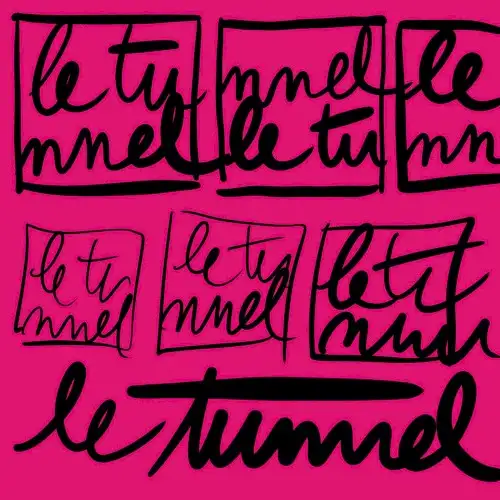 le tu nnel le
nnel le tu nn
le tu le tu le tu
nnel nnel nnn
le tunnel